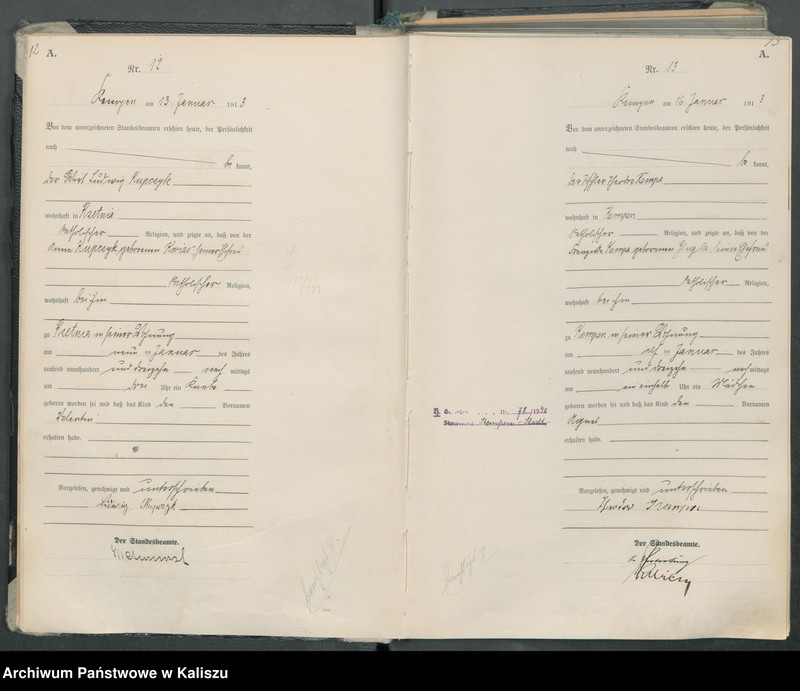 12
A.
Nr. 12
Kempen am 13. Januar 1913
Vor dem unterzeichneten Standesbeamten erschien heute, der Persönlichkeit
nach
be kannt,
der Wirt Ludwig Kupczyk
wohnhaft in Rzetnia
katholischer Religion, und zeigte an, daß von der
Anna Kupczyk geborenen seiner Ehefrau
katholischer Religion,
wohnhaft bei ihm
zu Rzetnia in seiner Wohnung
am neun ten Januar des Jahres
tausend neunhundert und dreizehn nach mittags
um drei Uhr ein Knabe
geboren worden sei und daß das Kind den Vornamen
Valentin
erhalten habe.
Vorgelesen, genehmigt und unterschrieben
Ludwig Kupczyk
Der Standesbeamte.
13
A.
Nr. 13
Kempen am 16. Januar 1913
Vor dem unterzeichneten Standesbeamten erschien heute, der Persönlichkeit
nach
be kannt,
der Theodor Kempa
wohnhaft in Kempen
katholischer Religion, und zeigte an, daß von der
Franziska Kempa geborenen seiner Ehefrau
katholischer Religion,
wohnhaft bei ihm
zu Kempen in seiner Wohnung
am elf ten Januar des Jahres
tausend neunhundert und dreizehn nach mittags
um ein einhalb Uhr ein Mädchen
geboren worden sei und daß das Kind den Vornamen
Agnes
erhalten habe.
Vorgelesen, genehmigt und unterschrieben
Kempa
Der Standesbeamte.
In Vertretung
Archiwum Państwowe w Kaliszu